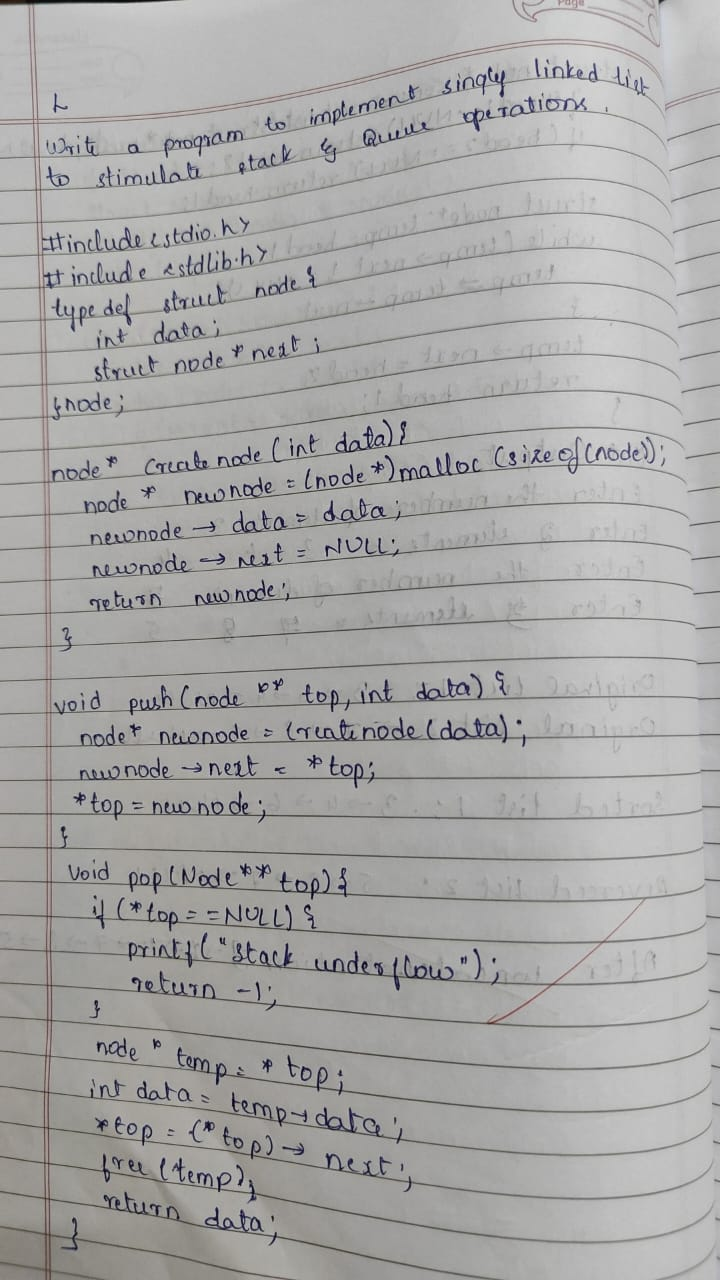 Page
L
Write a program to implement singly linked list
to stimulate stack & Queue operations.
#include <stdio.h>
#include <stdlib.h>
typedef struct node {
int data;
struct node * next;
}node;
node* Createnode (int data) {
node * newnode = (node*)malloc (sizeof(node));
newnode → data = data;
newnode → next = NULL;
return newnode;
}
void push (node ** top, int data) {
node* newnode = Createnode (data);
newnode → next = *top;
*top = newnode;
}
void pop (Node ** top) {
if (*top == NULL) {
printf ("Stack underflow");
return -1;
}
node * temp = * top;
int data = temp → data;
*top = (*top) → next;
free (temp);
return data;
}